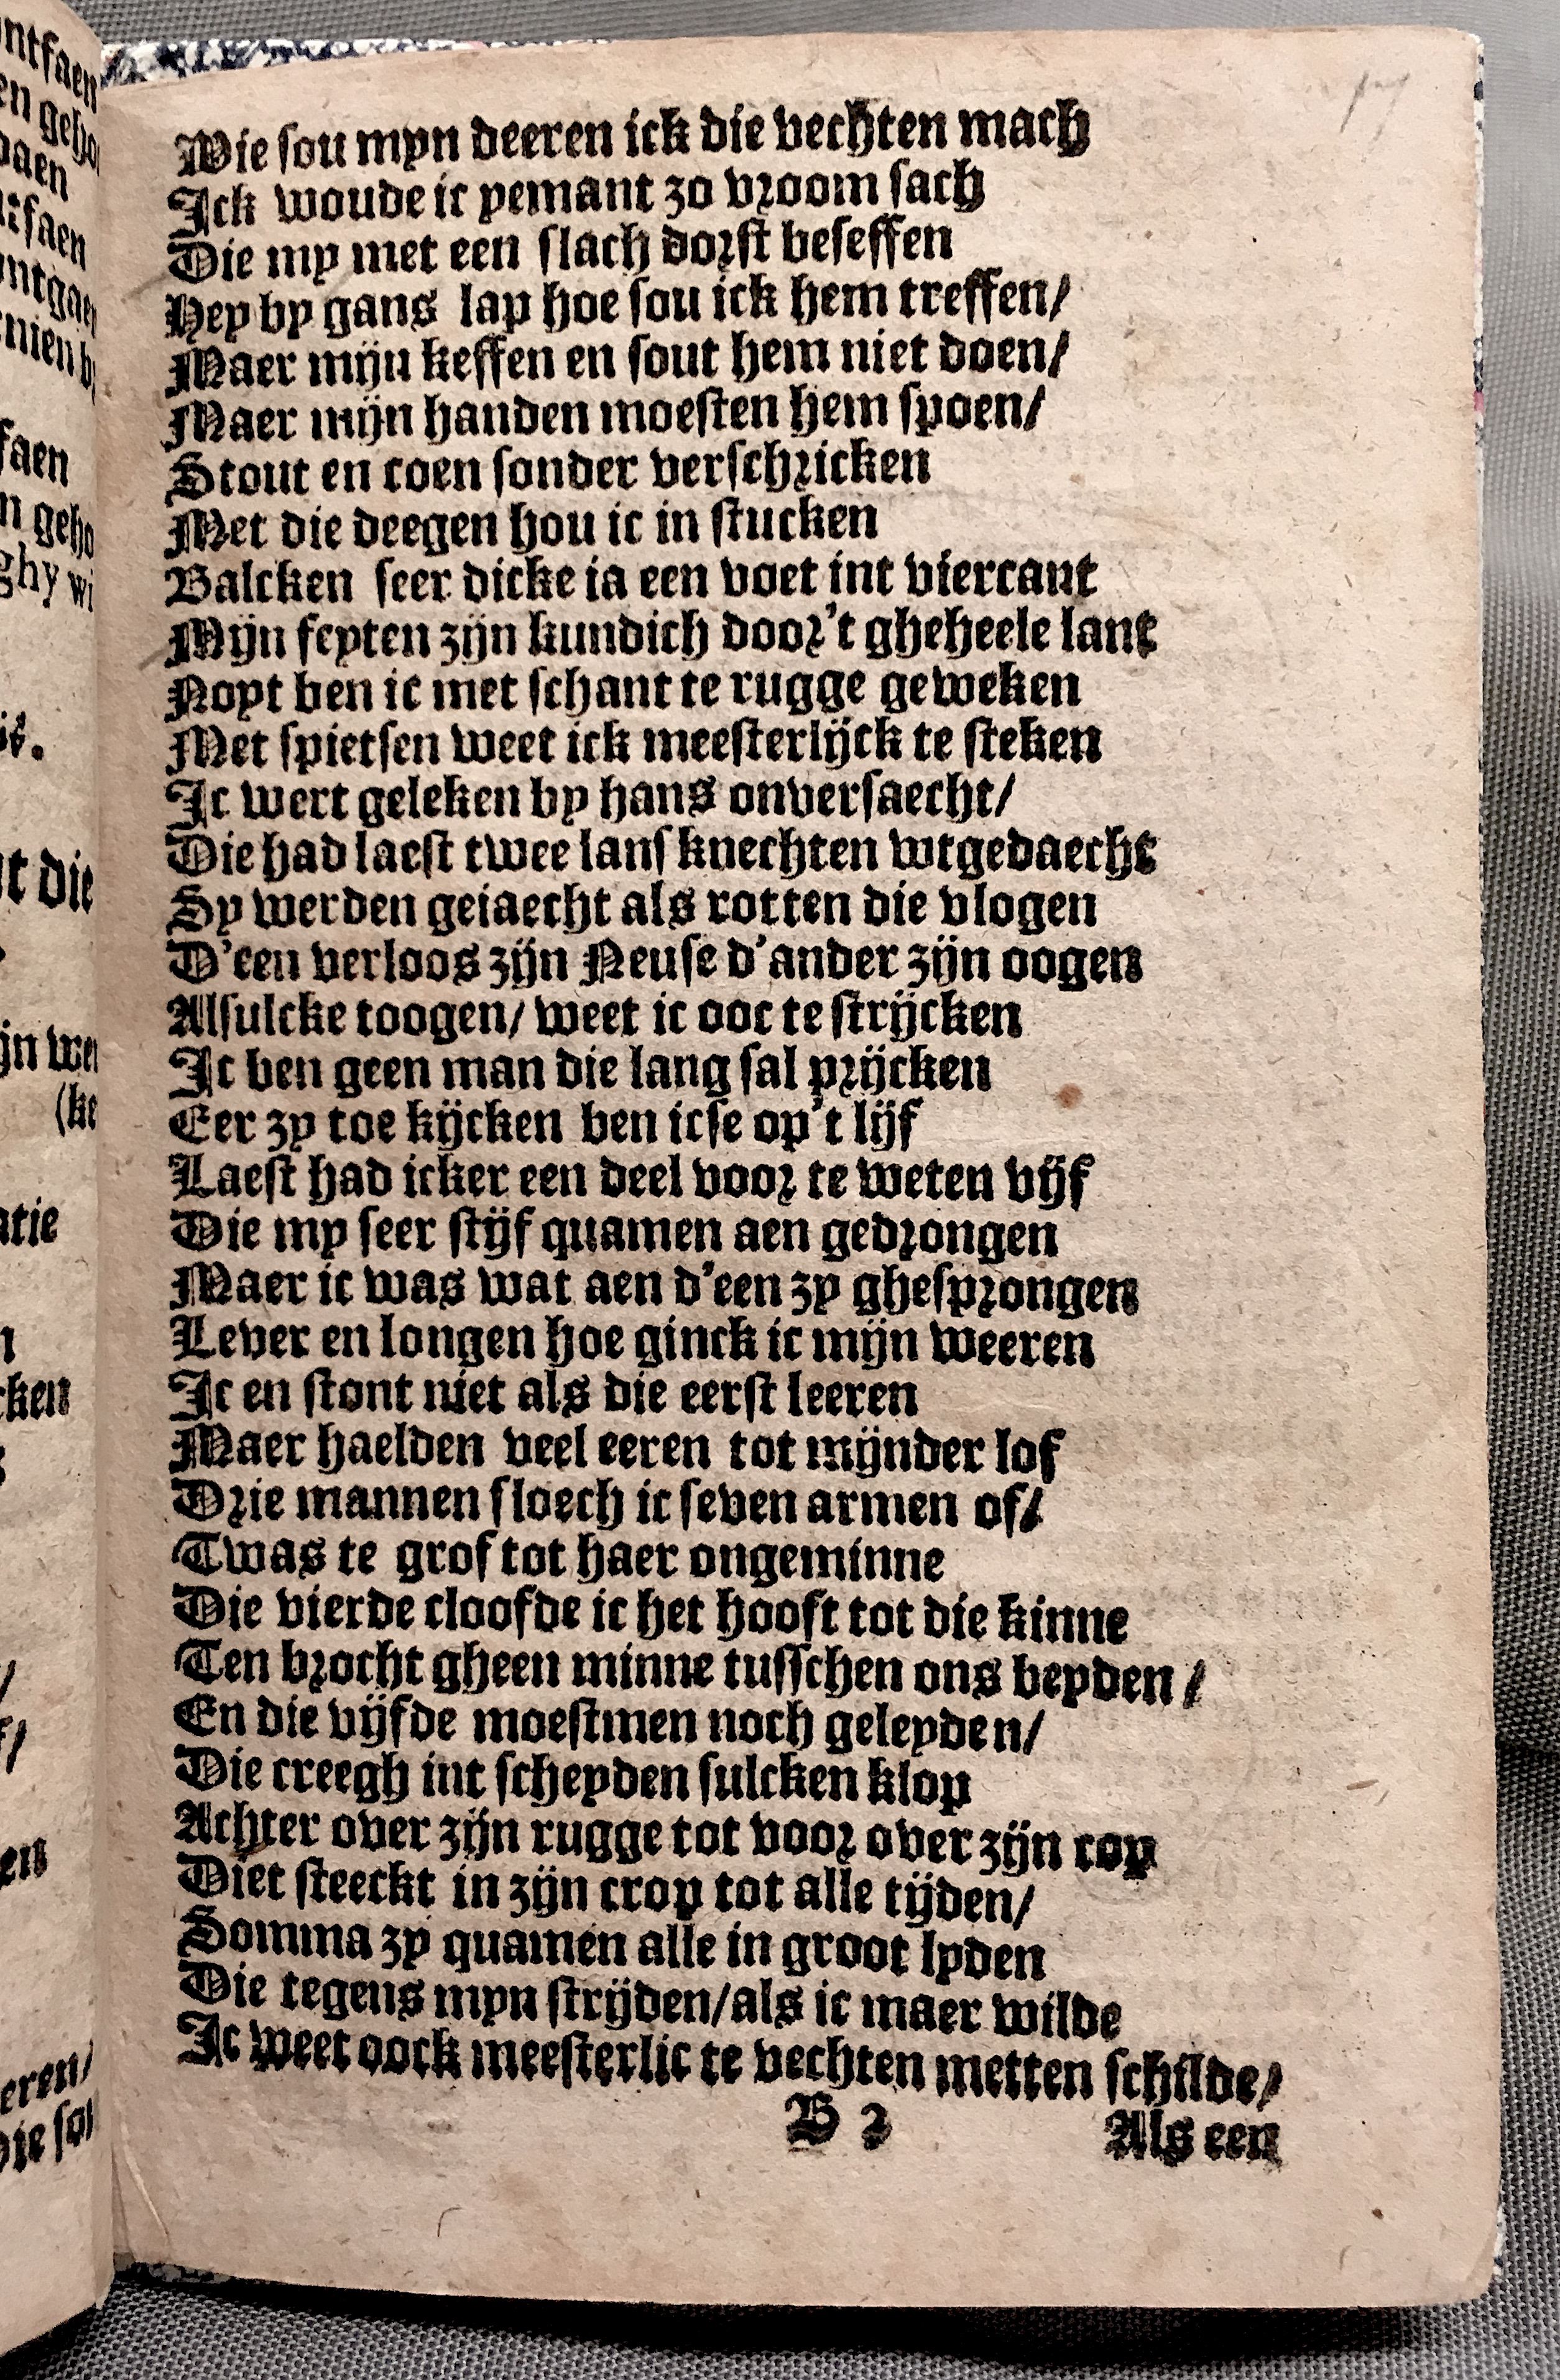 Wie sou myn deeren ick die vechten mach
Ick woude ic yemant zo vroom sach
Die my met een slach dorst beseffen
Hey by gans lap hoe sou ick hem treffen/
Maer mijn keffen en sout hem niet doen/
Maer mijn handen moesten hem spoen/
Stout en coen sonder verschricken
Met die deegen hou ic in stucken
Balcken seer dicke ia een voet int viercant
Mijn feyten zijn kundich door't gheheele lant
Noyt ben ic met schant te rugge geweken
Met spietsen weet ick meesterlijck te steken
Ic wert geleken by hans onversaecht/
Die had laest twee lans knechten wtgedaecht
Sy werden geiaecht als rotten die vlogen
D'een verloos zijn Neuse d'ander zijn oogen
Alsulcke toogen/ weet ic ooc te strijcken
Ic ben geen man die lang sal prijcken
Eer zy toe kijcken ben icse op't lijf
Laest had icker een deel voor te weten vijf
Die my seer stijf quamen aen gedrongen
Maer ic was wat aen d'een zy ghesprongen
Lever en longen hoe ginck ic mijn weeren
Ic en stont niet als die eerst leeren
Maer haelden veel eeren tot mijnder lof
Drie mannen sloech ic seven armen of/
Twas te grof tot haer ongeminne
Die vierde cloofde ic het hooft tot die kinne
Ten brocht gheen minne tusschen ons beyden/
En die vijfde moestmen noch geleyden/
Die creegh int scheyden sulcken klop
Achter over zijn rugge tot voor over zijn cop
Diet steeckt in zijn crop tot alle tijden/
Somma zy quamen alle in groot lyden
Die tegens myn strijden/als ic maer wilde
Ic weet oock meesterlic te vechten metten schilde/
B 2 Als een